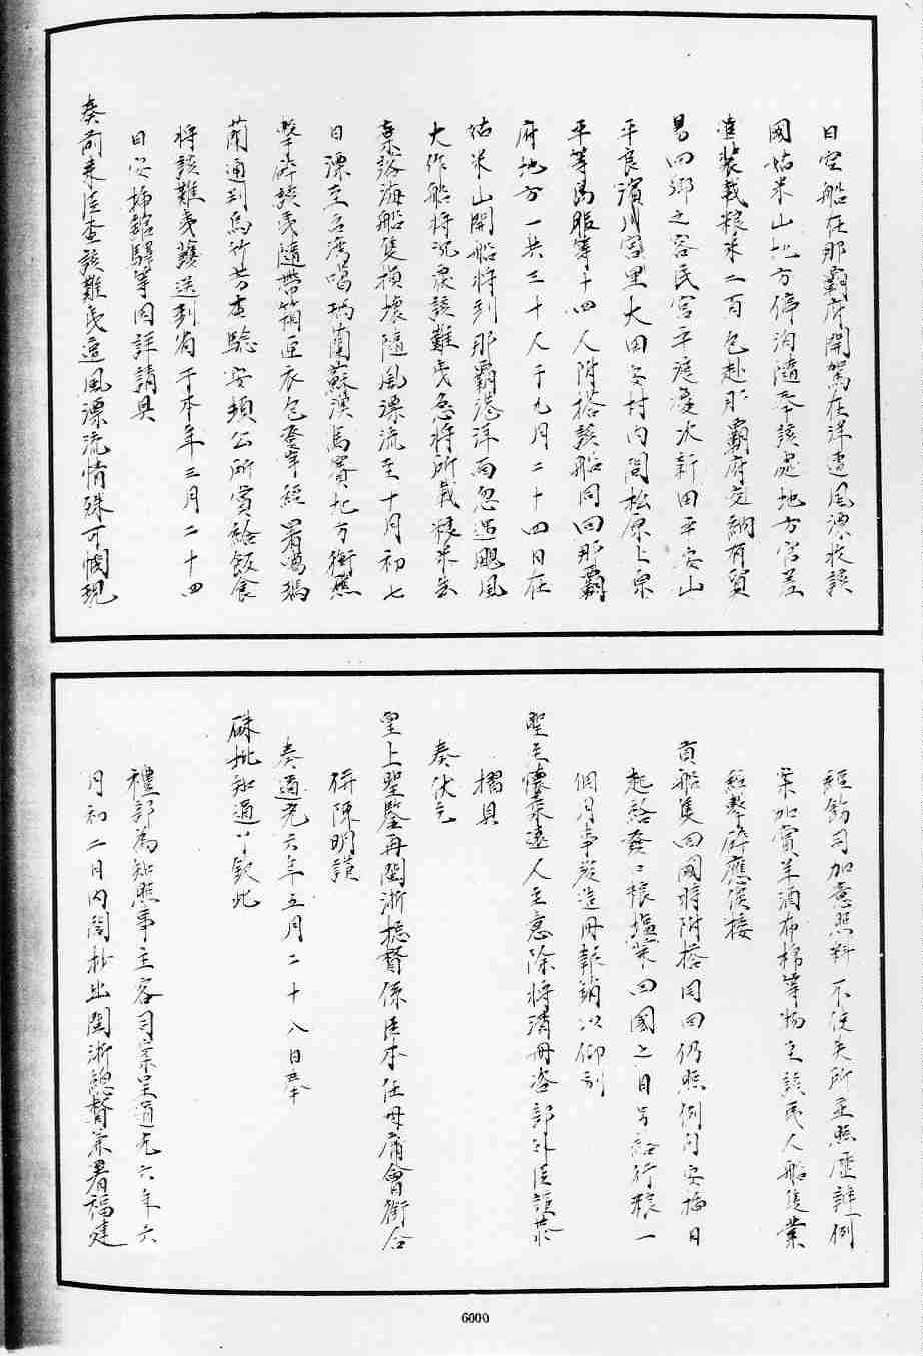 日空船在那霸府開駕在洋遭風漂收該
國姑米山地方停泊隨奉該處地方官差
裝載粮米二百包赴那霸府交納有貿
易回鄉之客民宮平渡慶次新田平安山
平良濱川宮里大田安村內間松原上原
平等島服等十四人附搭該船同回那霸
府地方一共三十人于九月二十四日在
姑米山開船將到那霸港洋面忽遇颶風
大作船將沉衆該難夷急將所載粮米丟
棄落海船隻損壞隨風漂流至十月初七
日漂至台灣噶瑪蘭蘇澳馬賽地方衝礁
擊碎該夷隨帶箱匣衣包登岸經署噶瑪
蘭通判烏竹芳查驗安頓公所賞給飯食
將該難夷護送到省于本年三月二十四
日安插館驛等因詳請具
奏前來臣查該難夷遭風漂流情殊可憫現
經飭司加意照料不使失所並照歷辦例
案加賞羊酒布棉等物至該民人船隻業
經擊碎應候接
貢船隻回國時附搭同回仍照例自安插日
起給發口粮鹽菜回國之日另給行粮一
個月事竣造冊報銷以仰副
聖主懷柔遠人至意除將清冊咨部外臣謹恭
摺具
奏伏乞
皇上聖鑒再閩浙總督係臣本任毋庸會銜合
併陳明謹
奏道光六年五月二十八日奉
硃批知道了欽此
禮部為知照事主客司案呈道光六年六
月初二日內閣抄出閩浙總督兼署福建
6000